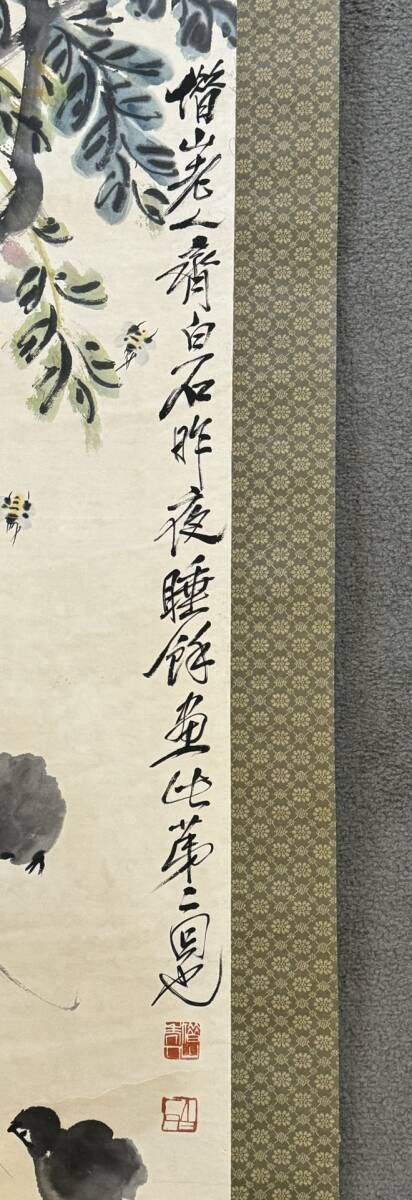 借山老人齊白石昨夜睡餘畫此第二回也